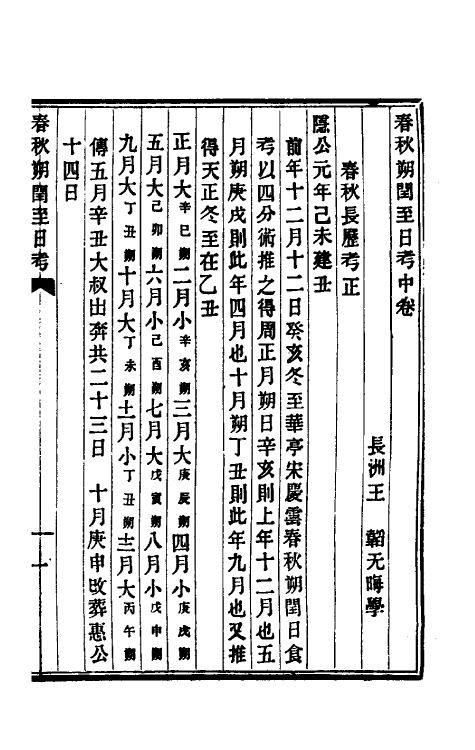 春秋朔閏至日考中卷
長洲王 韜无晦學
春秋長歷考正
隱公元年己未建丑
前年十二月十二日癸亥冬至華亭宋慶雲春秋朔閏日食
考以四分術推之得周正月朔日辛亥則上年十二月也五
月朔庚戌則此年四月也十月朔丁丑則此年九月也又推
得天正冬至在乙丑
正月大辛巳朔二月小辛亥朔三月大庚辰朔四月小庚戌朔
五月大己卯朔六月小己酉朔七月大戊寅朔八月小戊申朔
九月大丁丑朔十月大丁未朔十一月小丁丑朔十二月大丙午朔
傳五月辛丑大叔出奔共二十三日 十月庚申改葬惠公
十四日
春秋朔閏至日考
一